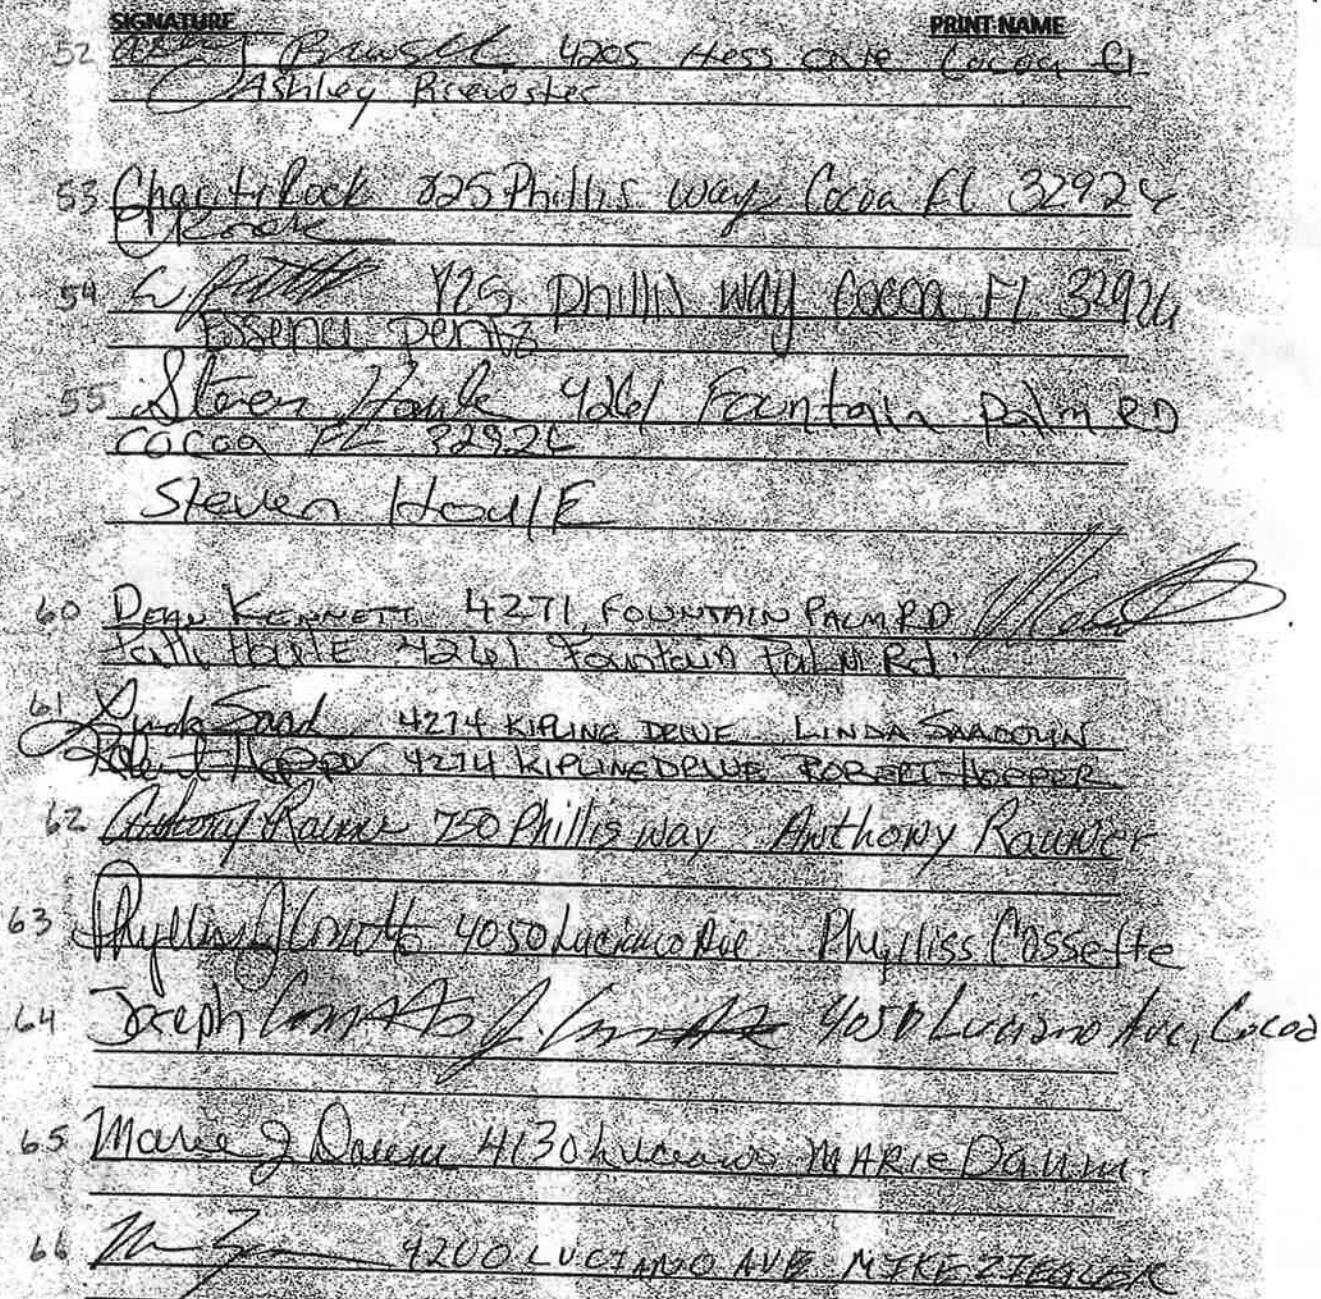 SIGNATURE PRINT NAME
52 4205 Hess Cocoa FL
Ashley Brewster
53 Chariti Rock 825 Phillis way Cocoa FL 32926
CRock
54 825 Phillis way Cocoa FL 32926
Essence pentz
55 Steven Houle 4261 Fountain palm RD
cocoa FL 32926
Steven HoulE
60 DEAN KENNETT 4271, FOUNTAIN PALM RD
Patti HoulE 4261 Fountain Palm Rd.
61 Linda 4274 KIPLING DRIVE LINDA SAADOUN
Robert Hopper 4274 KIPLING DRIVE ROBERT HOPPER
62 Anthony 750 Phillis way Anthony
63 4050 Luciano Ave Phylliss Cossette
64 Joseph 4050 Luciano Ave, Cocoa
65 Marie J Daum 4130 Luciano MARie Daum
66 4200 LUCIANO AVE MIKE ZIEGLER